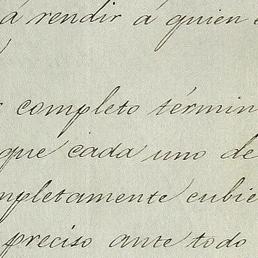 á rendir á quien
completo términ
que cada uno de
mpletamente cubie
preciso ante todo